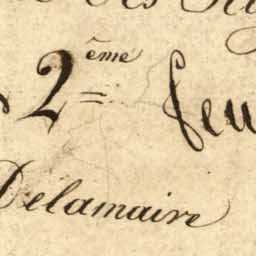 2ème feu
Delamaire